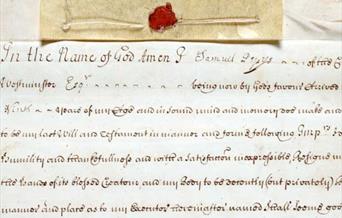 In the Name of God Amen I Samuel Pepys of the C
Westminster Esqr being now by Gods favour arrived
years of my Age and in sound mind and memory doe make and
to be my last Will and Testament in manner and forme following
Humility and thankfullness and with a satisfaction inexpressible Resigne m
the hands of its blessed Creatour and my Body to be decently (but privately)
manner and place as to my Executor hereinafter named shall seeme good